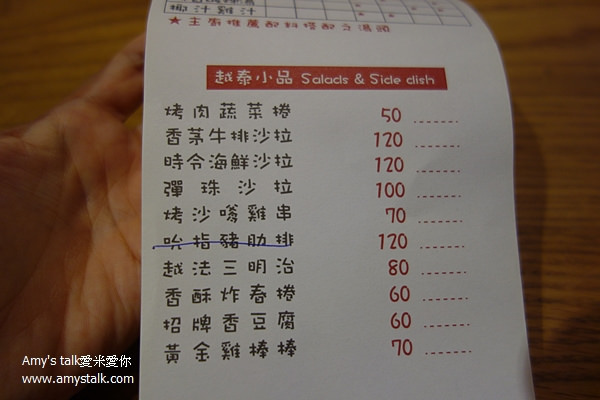 椰汁雞汁
★主廚推薦配料搭配之湯頭
越泰小品 Salads & Side dish
烤肉蔬菜捲 50
香茅牛排沙拉 120
時令海鮮沙拉 120
彈珠沙拉 100
烤沙嗲雞串 70
吮指豬肋排 120
越法三明治 80
香酥炸春捲 60
招牌香豆腐 60
黃金雞棒棒 70
Amy's talk愛米愛你
www.amystalk.com